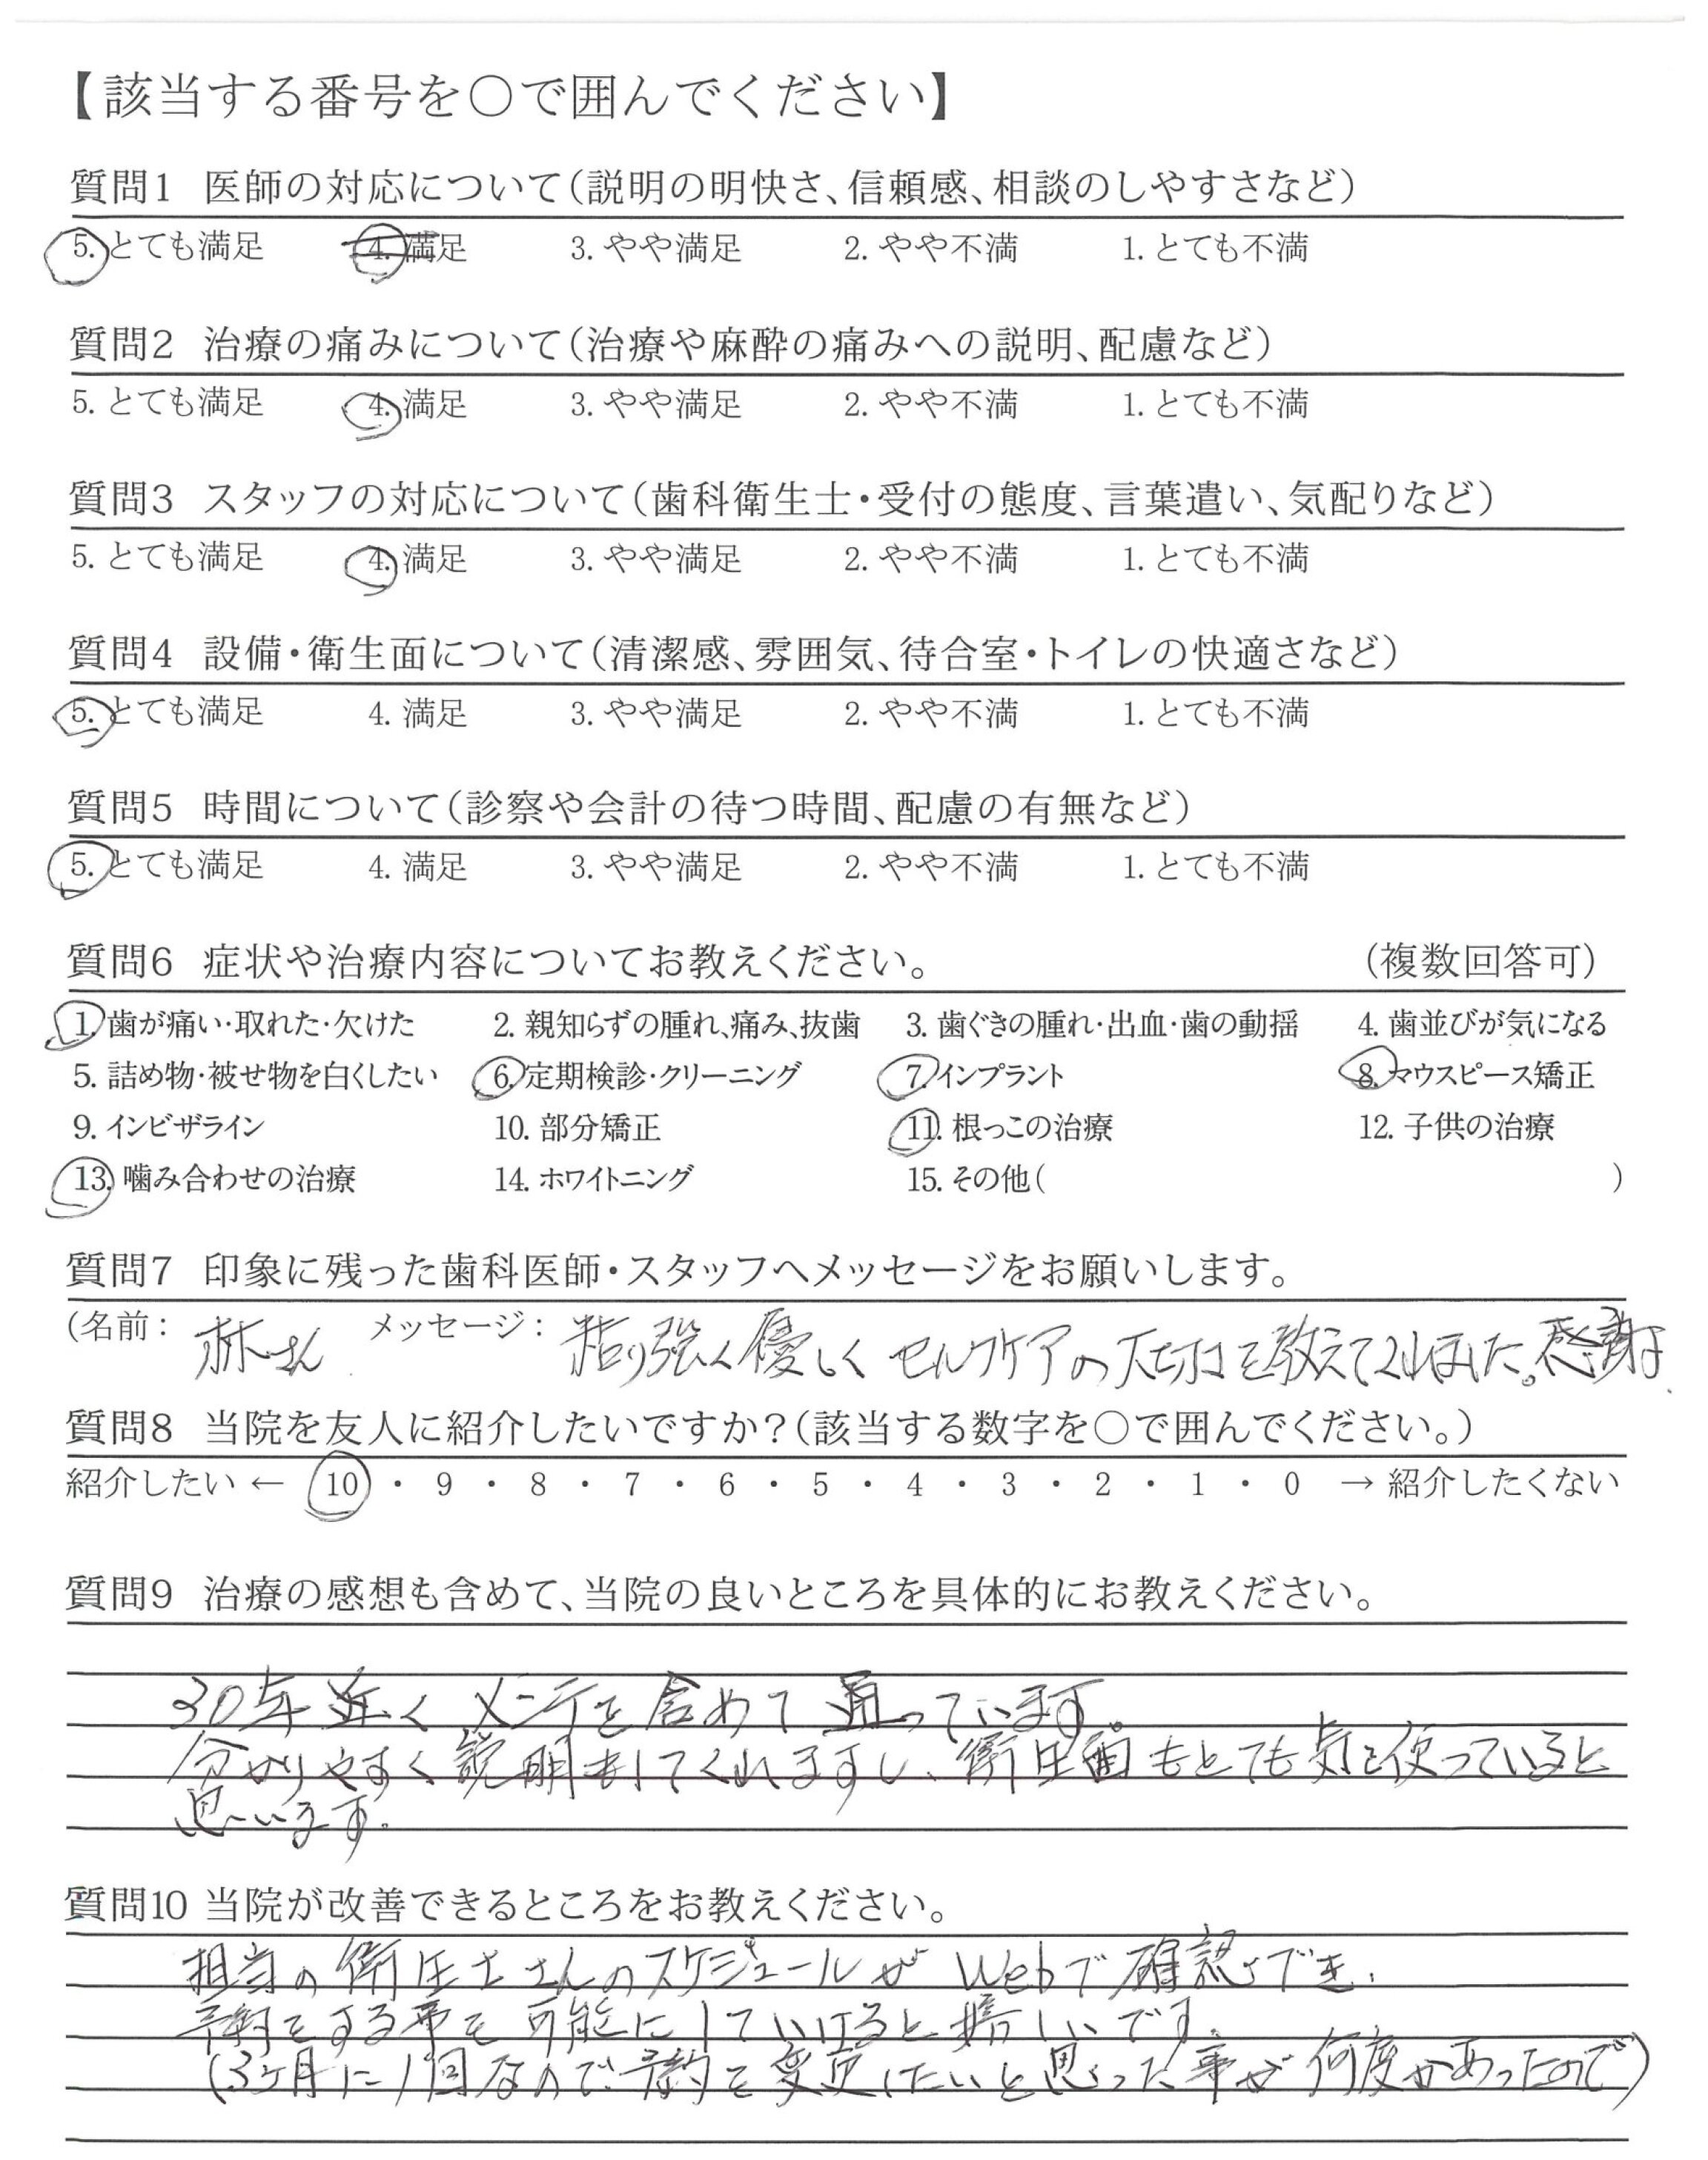 【該当する番号を○で囲んでください】
質問1 医師の対応について(説明の明快さ、信頼感、相談のしやすさなど)
5. とても満足 4. 満足 3. やや満足 2. やや不満 1. とても不満
質問2 治療の痛みについて(治療や麻酔の痛みへの説明、配慮など)
5. とても満足 4. 満足 3. やや満足 2. やや不満 1. とても不満
質問3 スタッフの対応について(歯科衛生士・受付の態度、言葉遣い、気配りなど)
5. とても満足 4. 満足 3. やや満足 2. やや不満 1. とても不満
質問4 設備・衛生面について(清潔感、雰囲気、待合室・トイレの快適さなど)
5. とても満足 4. 満足 3. やや満足 2. やや不満 1. とても不満
質問5 時間について(診察や会計の待つ時間、配慮の有無など)
5. とても満足 4. 満足 3. やや満足 2. やや不満 1. とても不満
質問6 症状や治療内容についてお教えください。 (複数回答可)
1. 歯が痛い・取れた・欠けた 2. 親知らずの腫れ、痛み、抜歯 3. 歯ぐきの腫れ・出血・歯の動揺 4. 歯並びが気になる
5. 詰め物・被せ物を白くしたい 6. 定期検診・クリーニング 7. インプラント 8. マウスピース矯正
9. インビザライン 10. 部分矯正 11. 根っこの治療 12. 子供の治療
13. 噛み合わせの治療 14. ホワイトニング 15. その他( )
質問7 印象に残った歯科医師・スタッフへメッセージをお願いします。
(名前: 林さん メッセージ: 粘り強く優しくセルフケアの大切さを教えてくれました。感謝
質問8 当院を友人に紹介したいですか?(該当する数字を○で囲んでください。)
紹介したい ← 10 ・ 9 ・ 8 ・ 7 ・ 6 ・ 5 ・ 4 ・ 3 ・ 2 ・ 1 ・ 0 → 紹介したくない
質問9 治療の感想も含めて、当院の良いところを具体的にお教えください。
30年近くメンテを含めて通っています。
分かりやすく説明もしてくれますし、衛生面もとても気を使っていると
思います。
質問10 当院が改善できるところをお教えください。
担当の衛生士さんのスケジュールがWebで確認でき、
予約をする事を可能にしていけると嬉しいです。
(3ヶ月に1回なので予約を変更したいと思った事が何度かあったので)